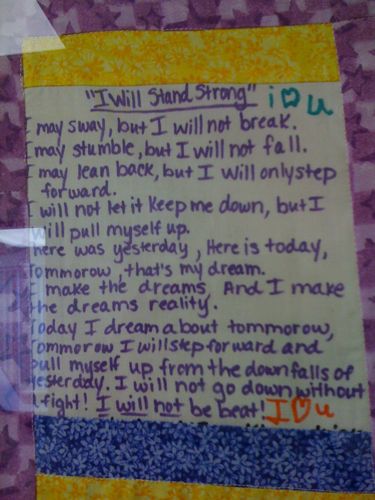 "I Will Stand Strong" i ♡ u
I may sway, but I will not break.
I may stumble, but I will not fall.
I may lean back, but I will only step
forward.
I will not let it keep me down, but I
will pull myself up.
here was yesterday, Here is today,
Tommorow, that's my dream.
I make the dreams, And I make
the dreams reality.
Today I dream about tommorow,
Tommorow I will step forward and
pull myself up from the downfalls of
yesterday. I will not go down without
a fight! I will not be beat! I ♡ u